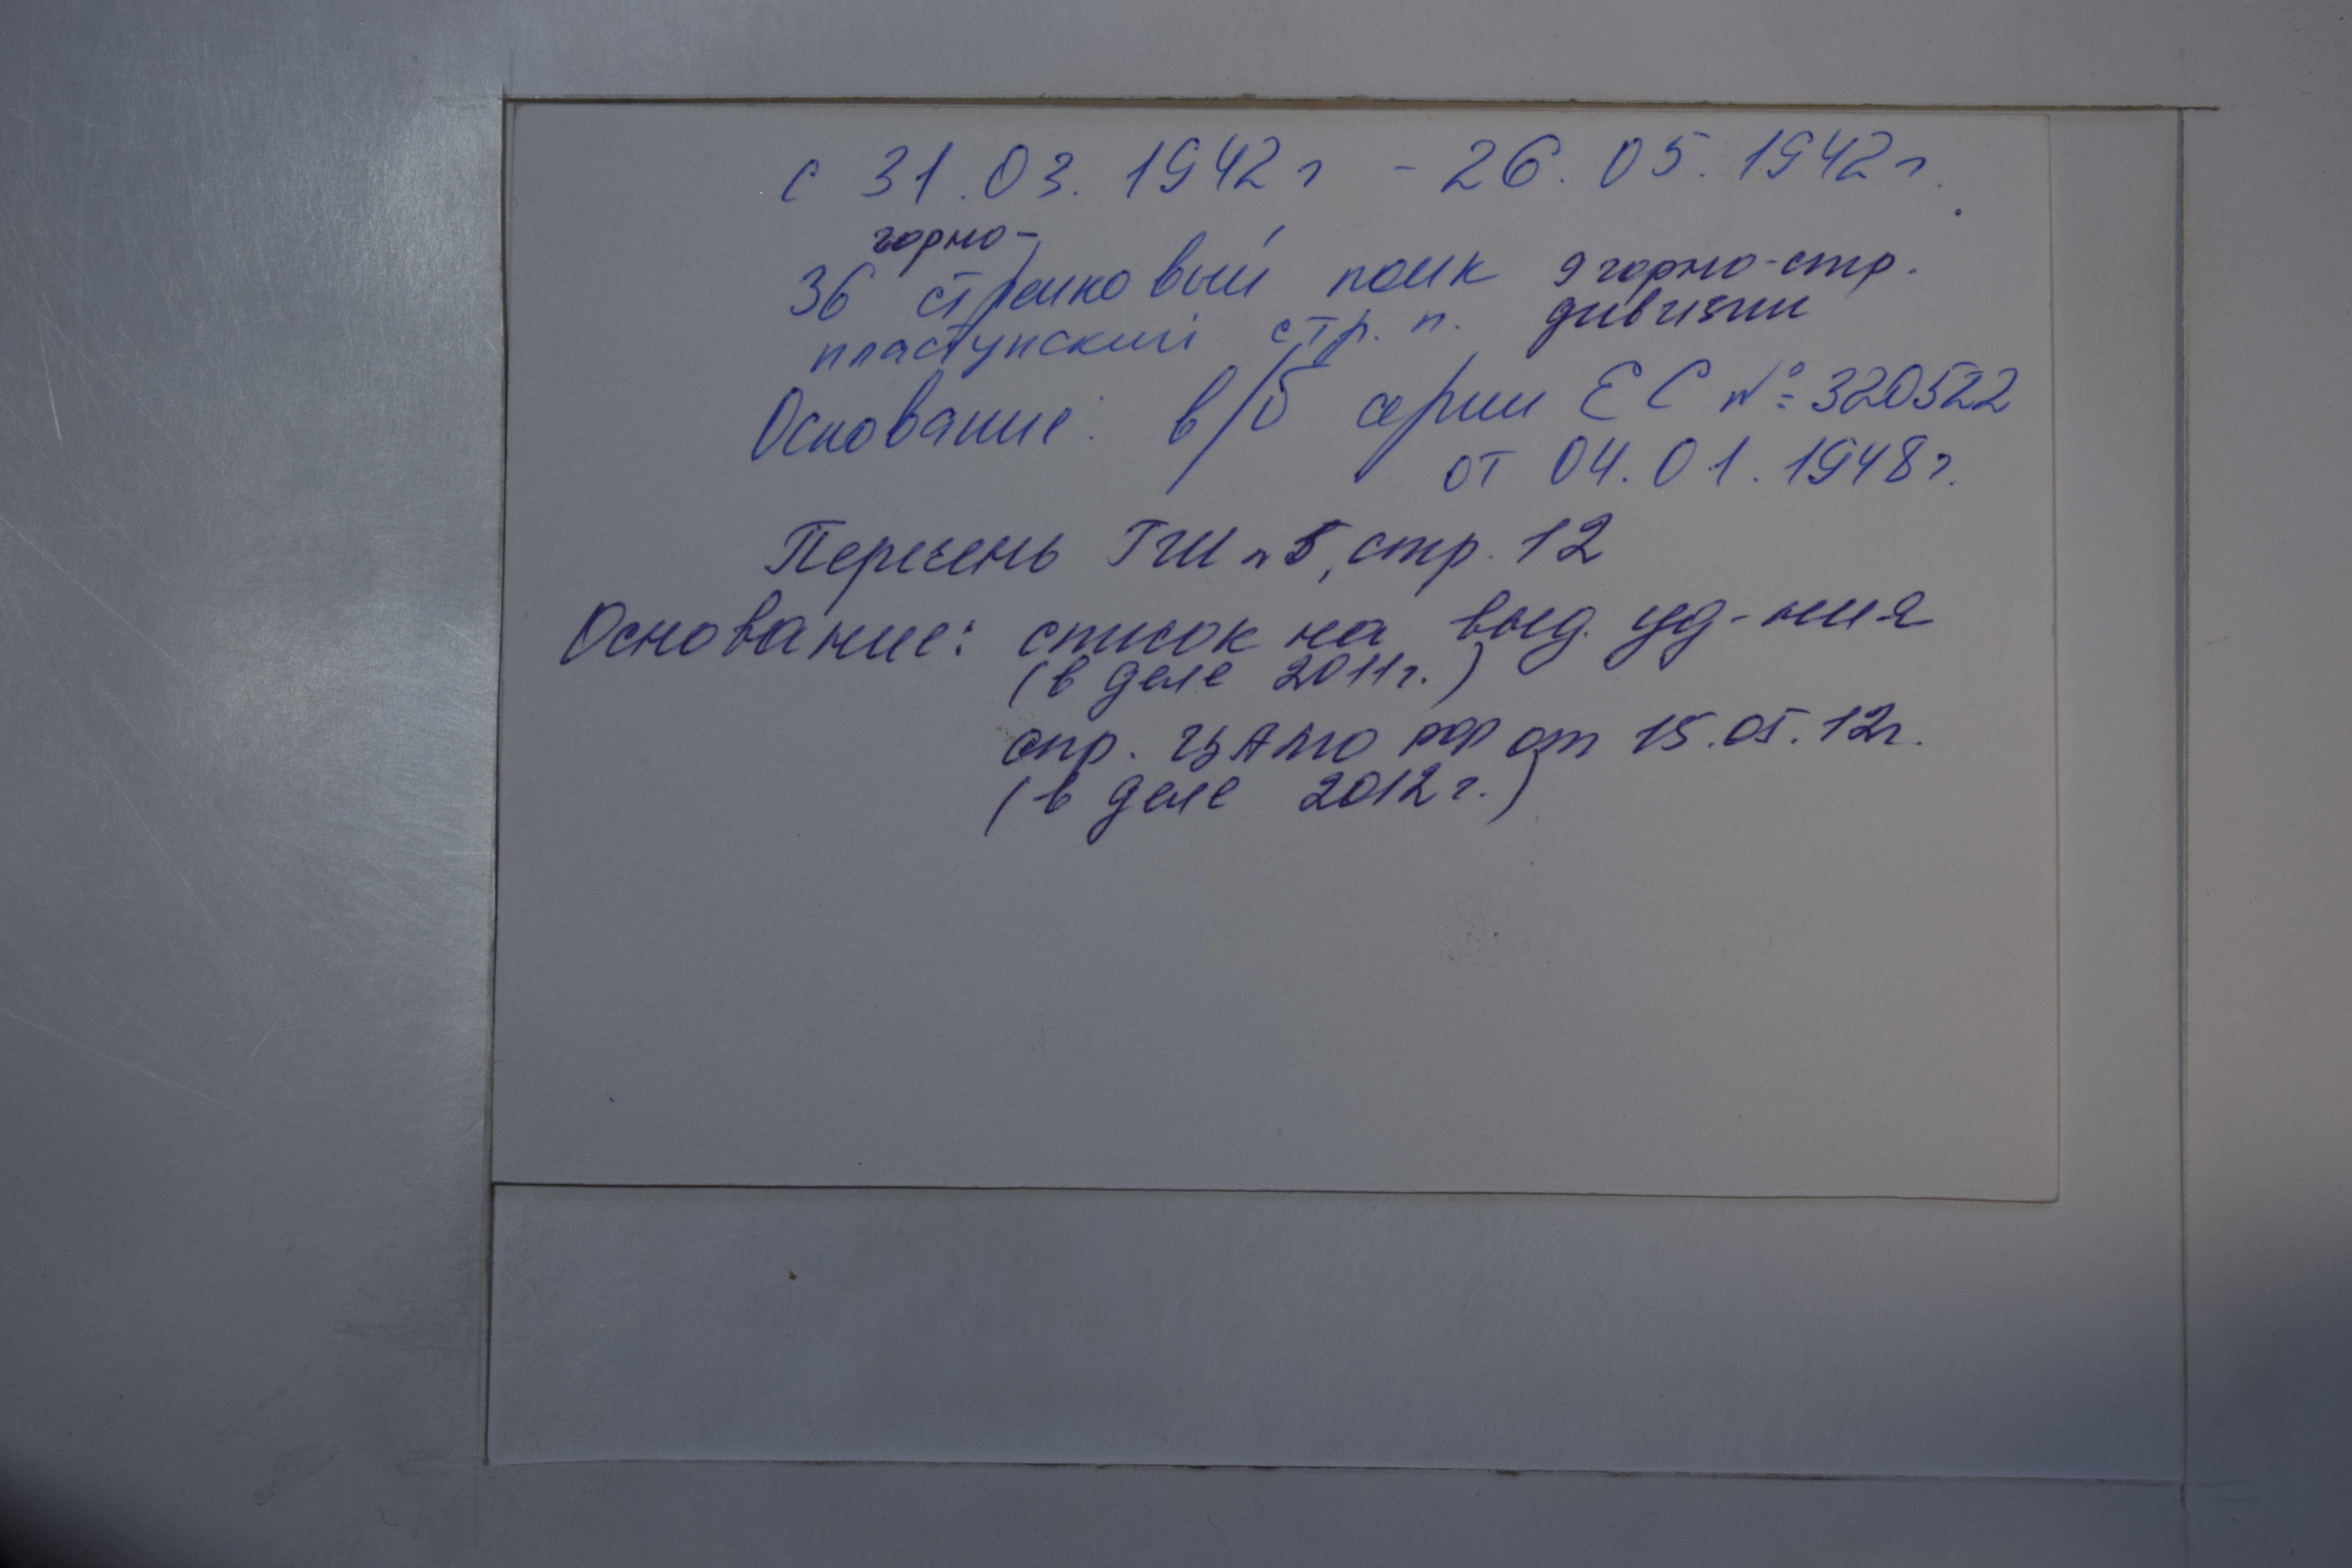 с 31.03.1942г - 26.05.1942г.
горно-
36 стрелковый полк 9 горно-стр.
пластунский стр. п. дивизии
Основание: в/б серии ЕС № 320522
от 04.01.1948г.
Перечень ГШ n 5, стр. 12
Основание: список на выд. уд-ния
(в деле 2011г.)
спр. ЦАМО РФ от 15.05.12г.
(в деле 2012г.)